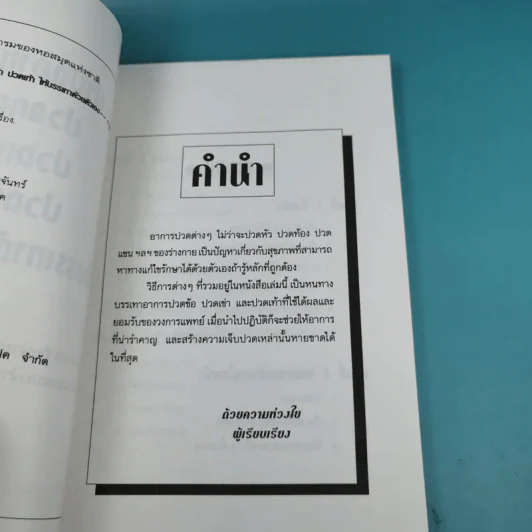 รมของหอสมุดแห่งชาติ
ปวดเท้า ให้บรรเทาด้วยตัวเอง
รื่อง.
จันทร์
ค
จำกัด
คำนำ
อาการปวดต่างๆ ไม่ว่าจะปวดหัว ปวดท้อง ปวด
แขน ฯลฯ ของร่างกาย เป็นปัญหาเกี่ยวกับสุขภาพที่สามารถ
หาทางแก้ไขรักษาได้ด้วยตัวเองถ้ารู้หลักที่ถูกต้อง
วิธีการต่างๆ ที่รวมอยู่ในหนังสือเล่มนี้ เป็นหนทาง
บรรเทาอาการปวดข้อ ปวดเข่า และปวดเท้าที่ใช้ได้ผลและ
ยอมรับของวงการแพทย์ เมื่อนำไปปฏิบัติก็จะช่วยให้อาการ
ที่น่ารำคาญ และสร้างความเจ็บปวดเหล่านั้นหายขาดได้
ในที่สุด
ด้วยความห่วงใย
ผู้เรียบเรียง